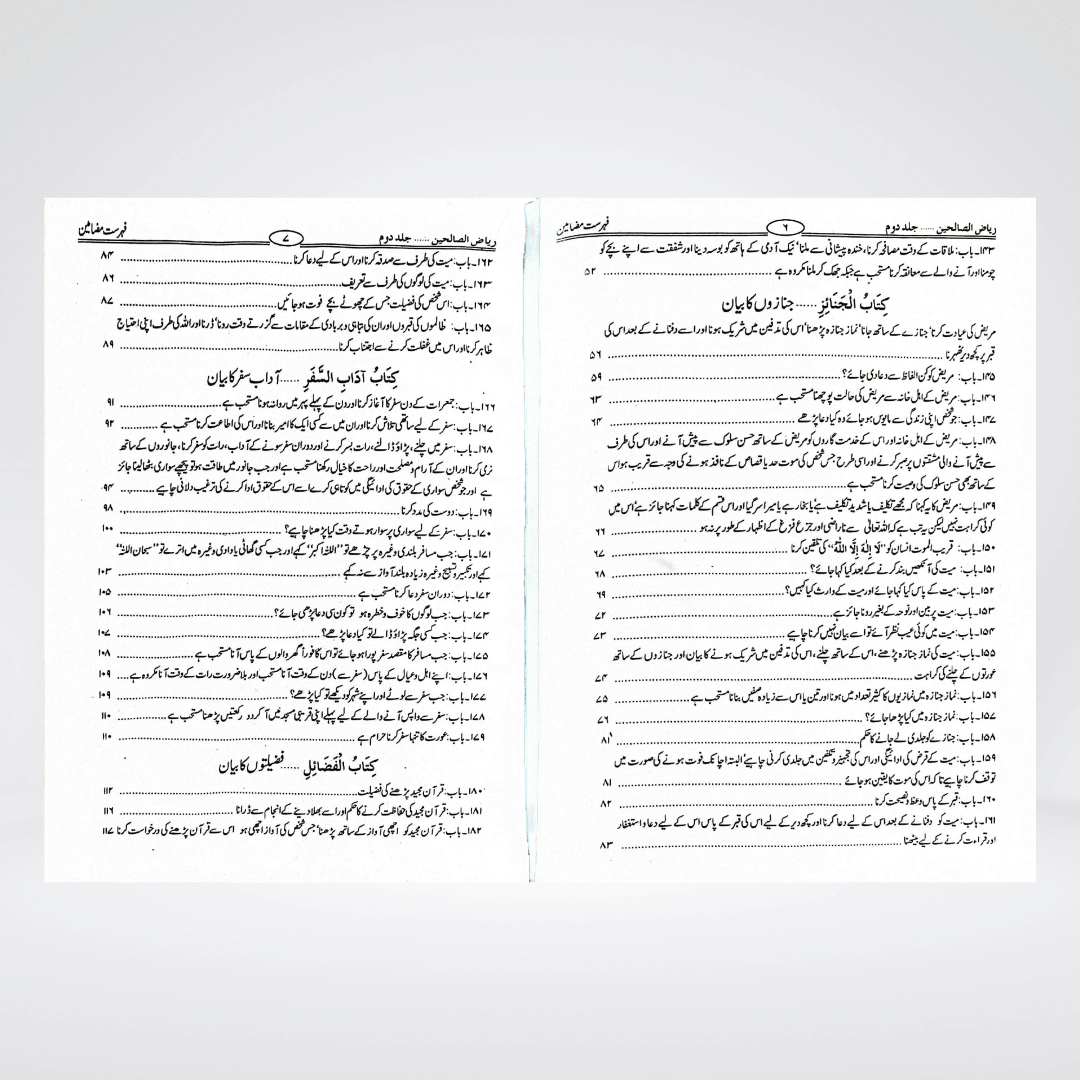 ریاض الصالحین ...... جلد دوم ۶ فہرست مضامین
۱۴۳۔ باب: ملاقات کے وقت مصافحہ کرنا، خندہ پیشانی سے ملنا' نیک آدمی کے ہاتھ کو بوسہ دینا اور شفقت سے اپنے بچے کو
چومنا اور آنے والے سے معانقہ کرنا مستحب ہے جبکہ جھک کر ملنا مکروہ ہے ۵۲
کِتَابُ الْجَنَائِزِ ...... جنازوں کا بیان
مریض کی عیادت کرنا' جنازے کے ساتھ جانا' نماز جنازہ پڑھنا' اس کی تدفین میں شریک ہونا اور اسے دفنانے کے بعد اس کی
قبر پر کچھ دیر ٹھہرنا ۵۶
۱۴۵۔ باب: مریض کو کن الفاظ سے دعا دی جائے؟ ۵۹
۱۴۶۔ باب: مریض کے اہل خانہ سے مریض کی حالت پوچھنا مستحب ہے ۶۳
۱۴۷۔ باب: جو شخص اپنی زندگی سے مایوس ہو جائے وہ کیا دعا پڑھے ۶۴
۱۴۸۔ باب: مریض کے اہل خانہ اور اس کے خدمت گاروں کو مریض کے ساتھ حسن سلوک سے پیش آنے اور اس کی طرف
سے پیش آنے والی مشقتوں پر صبر کرنے اور اسی طرح جس شخص کی موت حد یا قصاص کے نافذ ہونے کی وجہ سے قریب ہو اس
کے ساتھ بھی حسن سلوک کی وصیت کرنا مستحب ہے ۶۵
۱۴۹۔ باب: مریض کا یہ کہنا کہ مجھے تکلیف یا شدید تکلیف ہے' یا بخار ہے یا میرا سر گیا اور اس قسم کے کلمات کہنا جائز ہے' اس میں
کوئی کراہت نہیں لیکن یہ تب ہے کہ اللہ تعالٰی سے ناراضی اور جزع فزع کے اظہار کے طور پر نہ ہو ۶۶
۱۵۰۔ باب: قریب الموت انسان کو ''لَا اِلٰہَ اِلَّا اللّٰہُ'' کی تلقین کرنا ۶۷
۱۵۱۔ باب: میت کی آنکھیں بند کرنے کے بعد کیا کہا جائے؟ ۶۸
۱۵۲۔ باب: میت کے پاس کیا کہا جائے اور میت کے وارث کیا کہیں؟ ۶۹
۱۵۳۔ باب: میت پر بین اور نوحہ کے بغیر رونا جائز ہے ۷۲
۱۵۴۔ باب: میت میں کوئی عیب نظر آئے تو اسے بیان نہیں کرنا چاہیے ۷۳
۱۵۵۔ باب: میت کی نماز جنازہ پڑھنے، اس کے ساتھ چلنے، اس کی تدفین میں شریک ہونے کا بیان اور جنازوں کے ساتھ
عورتوں کے چلنے کی کراہت ۷۴
۱۵۶۔ باب: نماز جنازہ میں نمازیوں کا کثیر تعداد میں ہونا اور تین یا اس سے زیادہ صفیں بنانا مستحب ہے ۷۵
۱۵۷۔ باب: نماز جنازہ میں کیا پڑھا جائے؟ ۷۶
۱۵۸۔ باب: جنازے کو جلدی لے جانے کا حکم ۸۱
۱۵۹۔ باب: میت کے قرض کی ادائیگی اور اس کی تجہیز و تکفین میں جلدی کرنی چاہیے' البتہ اچانک فوت ہونے کی صورت میں
توقف کرنا چاہیے تاکہ اس کی موت کا یقین ہو جائے ۸۱
۱۶۰۔ باب: قبر کے پاس وعظ و نصیحت کرنا ۸۲
۱۶۱۔ باب: میت کو دفنانے کے بعد اس کے لیے دعا کرنا اور کچھ دیر کے لیے اس کی قبر کے پاس اس کے لیے دعا و استغفار
اور قراءت کرنے کے لیے بیٹھنا ۸۳
ریاض الصالحین ...... جلد دوم ۷ فہرست مضامین
۱۶۲۔ باب: میت کی طرف سے صدقہ کرنا اور اس کے لیے دعا کرنا ۸۴
۱۶۳۔ باب: میت کی لوگوں کی طرف سے تعریف ۸۶
۱۶۴۔ باب: اس شخص کی فضیلت جس کے چھوٹے بچے فوت ہو جائیں ۸۷
۱۶۵۔ باب: ظالموں کی قبروں اور ان کی تباہی و بربادی کے مقامات سے گزرتے وقت رونا' ڈرنا اور اللہ کی طرف اپنی احتیاج
ظاہر کرنا اور اس میں غفلت کرنے سے اجتناب کرنا ۸۹
کِتَابُ آدَابِ السَّفَرِ ...... آداب سفر کا بیان
۱۶۶۔ باب: جمعرات کے دن سفر کا آغاز کرنا اور دن کے پہلے پہر میں روانہ ہونا مستحب ہے ۹۱
۱۶۷۔ باب: سفر کے لیے ساتھی تلاش کرنا اور ان میں سے کسی ایک کا امیر بنانا اور اس کی اطاعت کرنا مستحب ہے ۹۲
۱۶۸۔ باب: سفر میں چلنے، پڑاؤ ڈالنے، رات بسر کرنے اور دوران سفر سونے کے آداب، رات کو سفر کرنا، جانوروں کے ساتھ
نرمی کرنا اور ان کے آرام و مصلحت اور راحت کا خیال رکھنا مستحب ہے اور جب جانور میں طاقت ہو تو پیچھے سواری بٹھا لینا جائز
ہے اور جو شخص سواری کے حقوق کی ادائیگی میں کوتاہی کرے اسے اس کے حقوق ادا کرنے کی ترغیب دلانی چاہیے ۹۴
۱۶۹۔ باب: دوست کی مدد کرنا ۹۸
۱۷۰۔ باب: سفر کے لیے سواری پر سوار ہوتے وقت کیا پڑھنا چاہیے؟ ۱۰۰
۱۷۱۔ باب: جب مسافر بلندی وغیرہ پر چڑھے تو ''اللہُ اکبرُ'' کہے اور جب کسی گھاٹی یا وادی وغیرہ میں اترے تو ''سبحان اللہ''
کہے اور تکبیر و تسبیح وغیرہ زیادہ بلند آواز سے نہ کہے ۱۰۳
۱۷۲۔ باب: دوران سفر دعا کرنا مستحب ہے ۱۰۵
۱۷۳۔ باب: جب لوگوں کا خوف و خطرہ ہو تو کون سی دعا پڑھی جائے؟ ۱۰۶
۱۷۴۔ باب: جب کسی جگہ پڑاؤ ڈالے تو کیا دعا پڑھے؟ ۱۰۷
۱۷۵۔ باب: جب مسافر کا مقصد سفر پورا ہو جائے تو اس کا فوراً گھر والوں کے پاس آنا مستحب ہے ۱۰۸
۱۷۶۔ باب: اپنے اہل و عیال کے پاس (سفر سے) دن کے وقت آنا مستحب اور بلا ضرورت رات کے وقت آنا مکروہ ہے ۱۰۹
۱۷۷۔ باب: جب سفر سے لوٹے اور اپنے شہر کو دیکھے تو کیا پڑھے؟ ۱۰۹
۱۷۸۔ باب: سفر سے واپس آنے والے کے لیے پہلے اپنی قریبی مسجد میں آ کر دو رکعتیں پڑھنا مستحب ہے ۱۱۰
۱۷۹۔ باب: عورت کا تنہا سفر کرنا حرام ہے ۱۱۰
کِتَابُ الْفَضَائِلِ ...... فضیلتوں کا بیان
۱۸۰۔ باب: قرآن مجید پڑھنے کی فضیلت ۱۱۲
۱۸۱۔ باب: قرآن مجید کی حفاظت کرنے کا حکم اور اسے بھلا دینے کے انجام سے ڈرانا ۱۱۶
۱۸۲۔ باب: قرآن مجید کو اچھی آواز کے ساتھ پڑھنا' جس شخص کی آواز اچھی ہو اس سے قرآن پڑھنے کی درخواست کرنا ۱۱۷